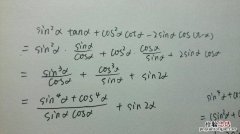 sin²α tanα + cos²α cotα - 2sinα cos(π-α)
= sin²α · sinα/cosα + cos²α · cosα/sinα + 2sinα cosα
= sin³α/cosα + cos³α/sinα + sin2α
= sin⁴α + cos⁴α/sinα cosα + sin2α